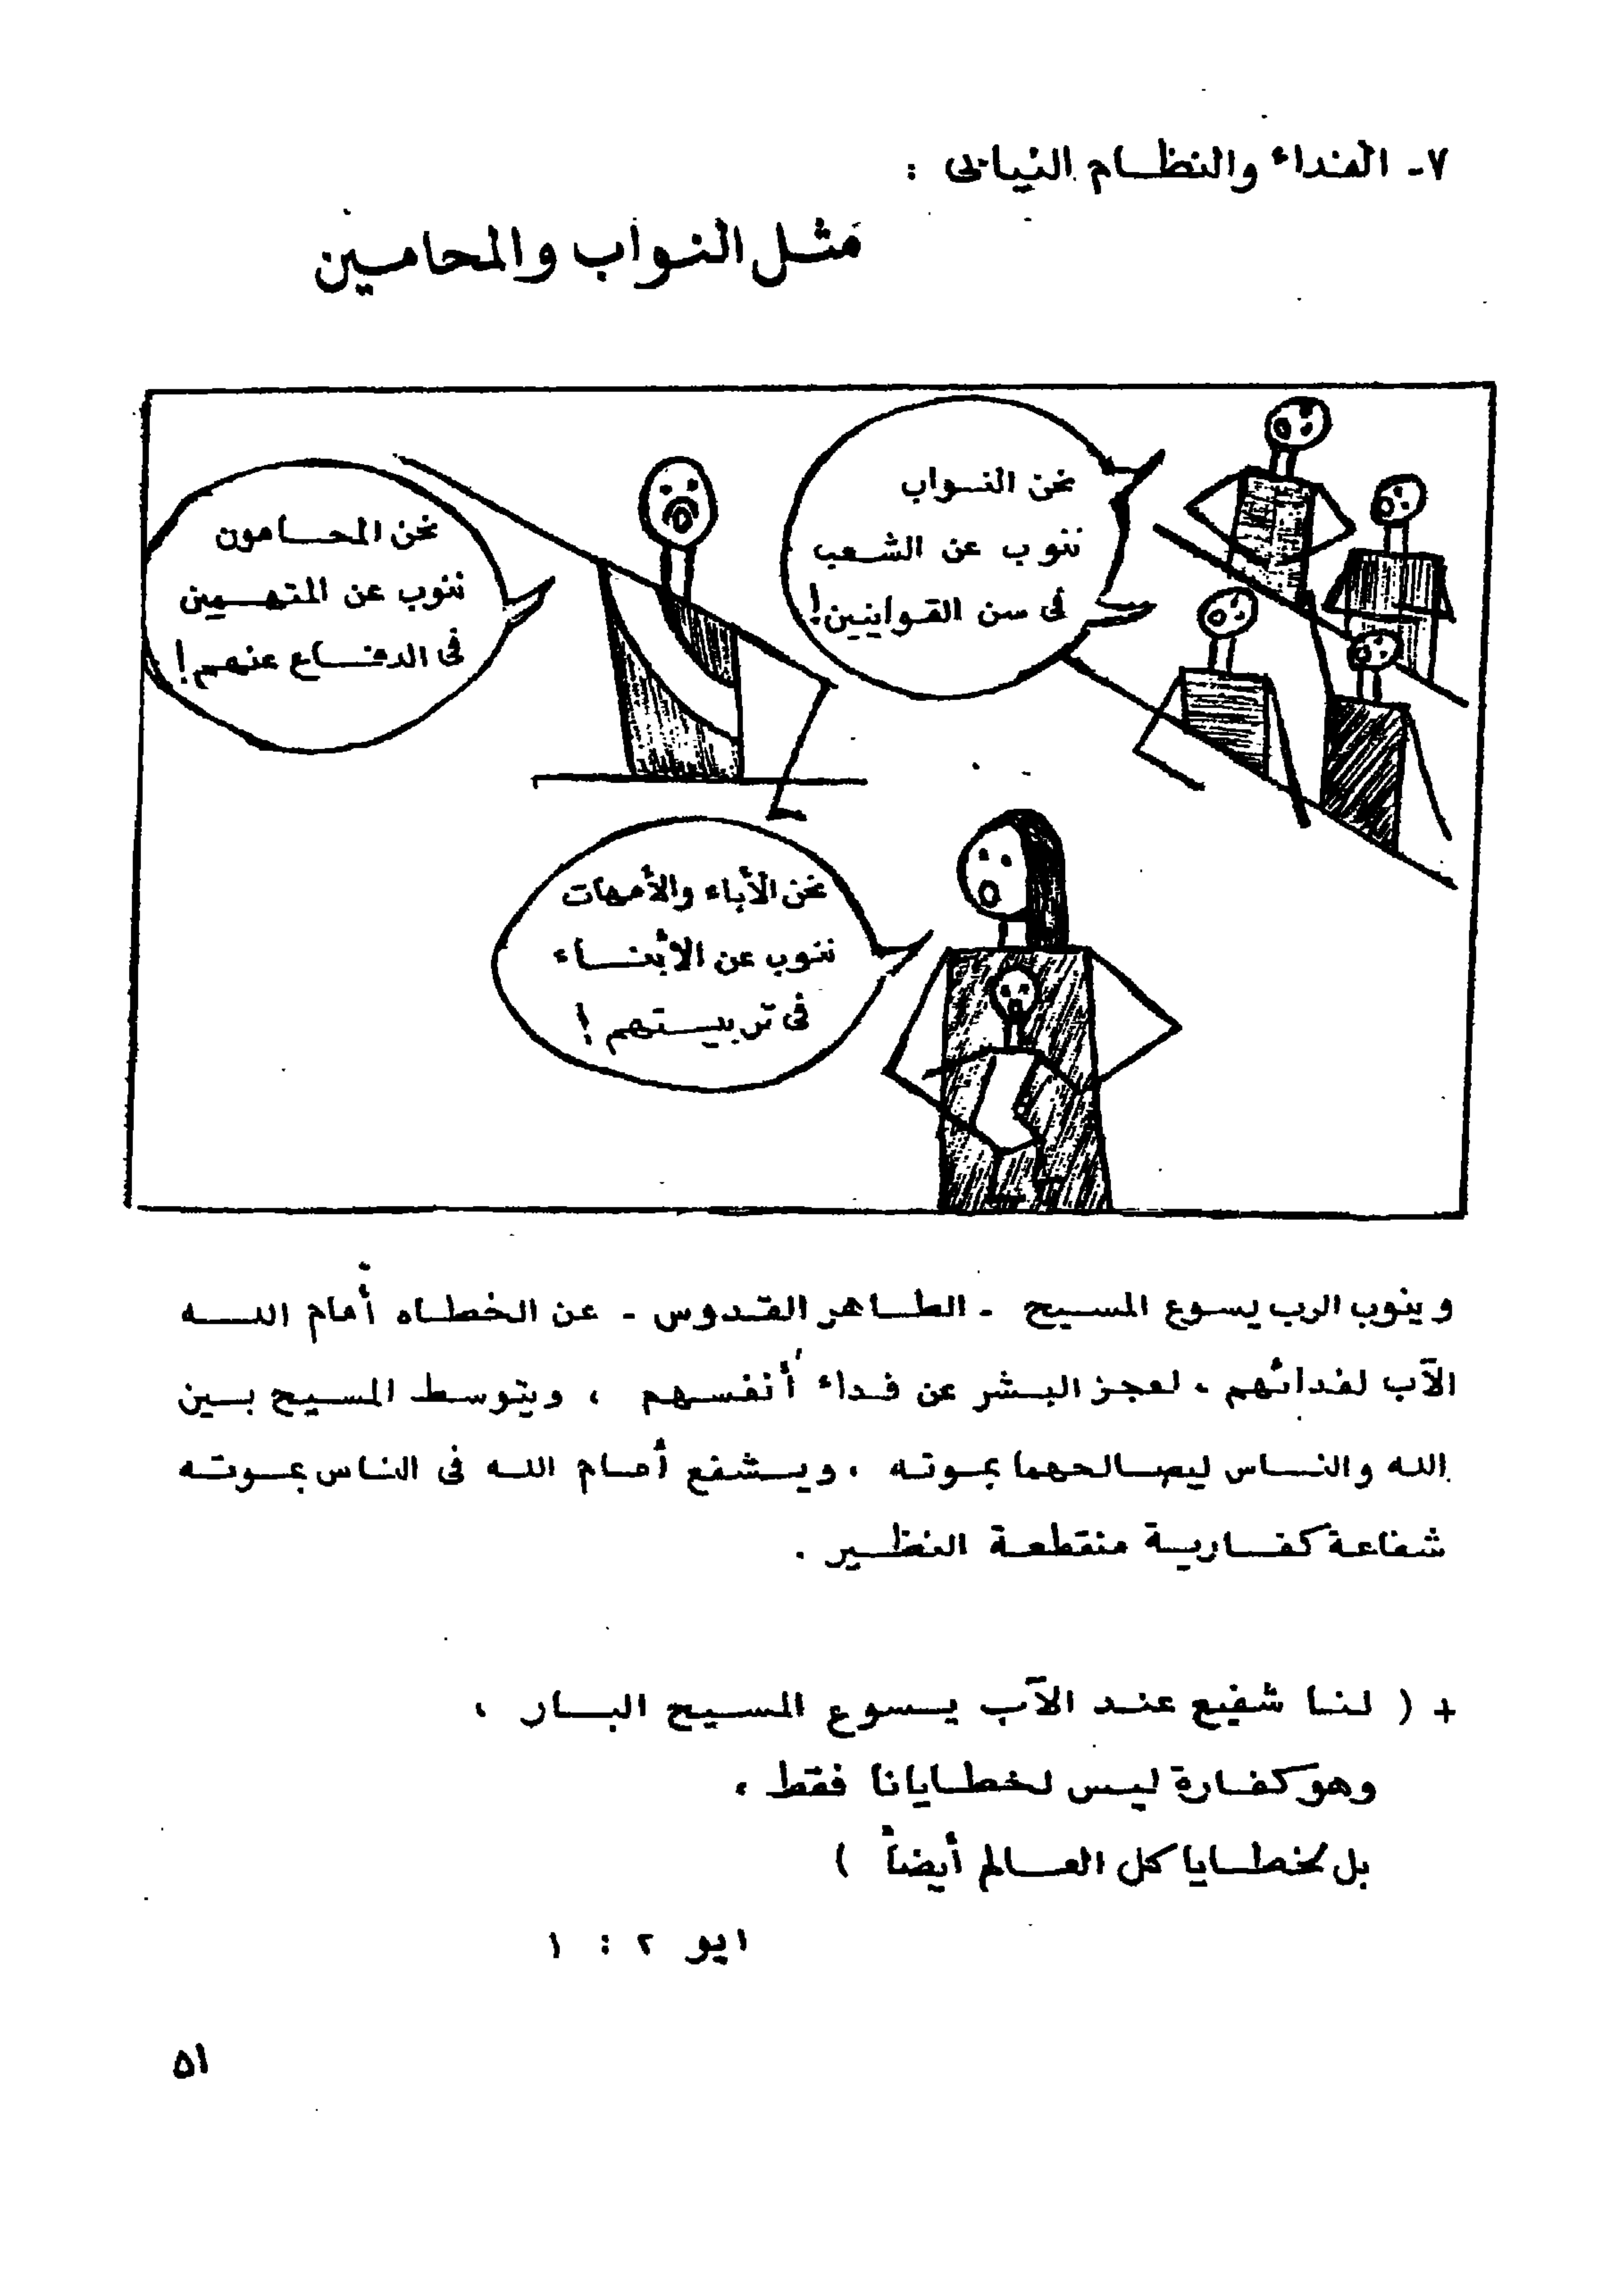 ٧- الفداء والنظام النيابى :
مثل النواب والمحامين
نحن النواب
ننوب عن الشعب
فى سن القوانين!
نحن المحامون
ننوب عن المتهمين
فى الدفاع عنهم!
نحن الأباء والأمهات
ننوب عن الأبناء
فى تربيتهم!
وينوب الرب يسوع المسيح - الطاهر القدوس - عن الخطاه أمام الله
الآب لفدائهم ، لعجز البشر عن فداء أنفسهم ، ويتوسط المسيح بين
الله والناس ليصالحهما بموته ، ويشفع أمام الله فى الناس بموته
شفاعة كفارية منقطعة النظير .
+ ( لنا شفيع عند الآب يسوع المسيح البار ،
وهو كفارة ليس لخطايانا فقط ،
بل لخطايا كل العالم أيضاً )
١يو ٢ : ١
٥١